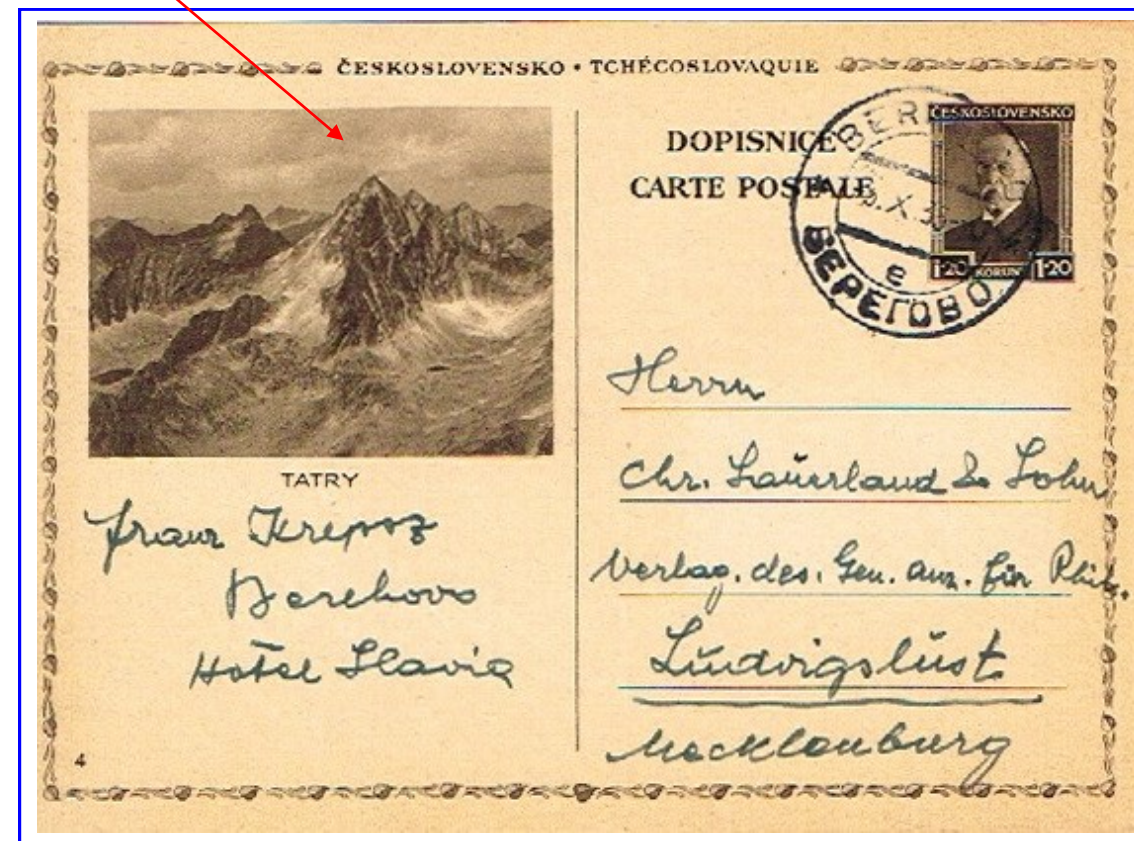 ČESKOSLOVENSKO • TCHÉCOSLOVAQUIE
DOPISNICE
CARTE POSTALE
ČESKOSLOVENSKO
1·20 KORUN 1·20
BER
X. 3
e
БЕРЕГОВО
TATRY
Franz
Berehovo
Hotel Slavia
4
Herrn
Chr. Sauerland & Sohn
Verlag. des. Gen. Anz. für Phil.
Ludwigslust
Mecklenburg